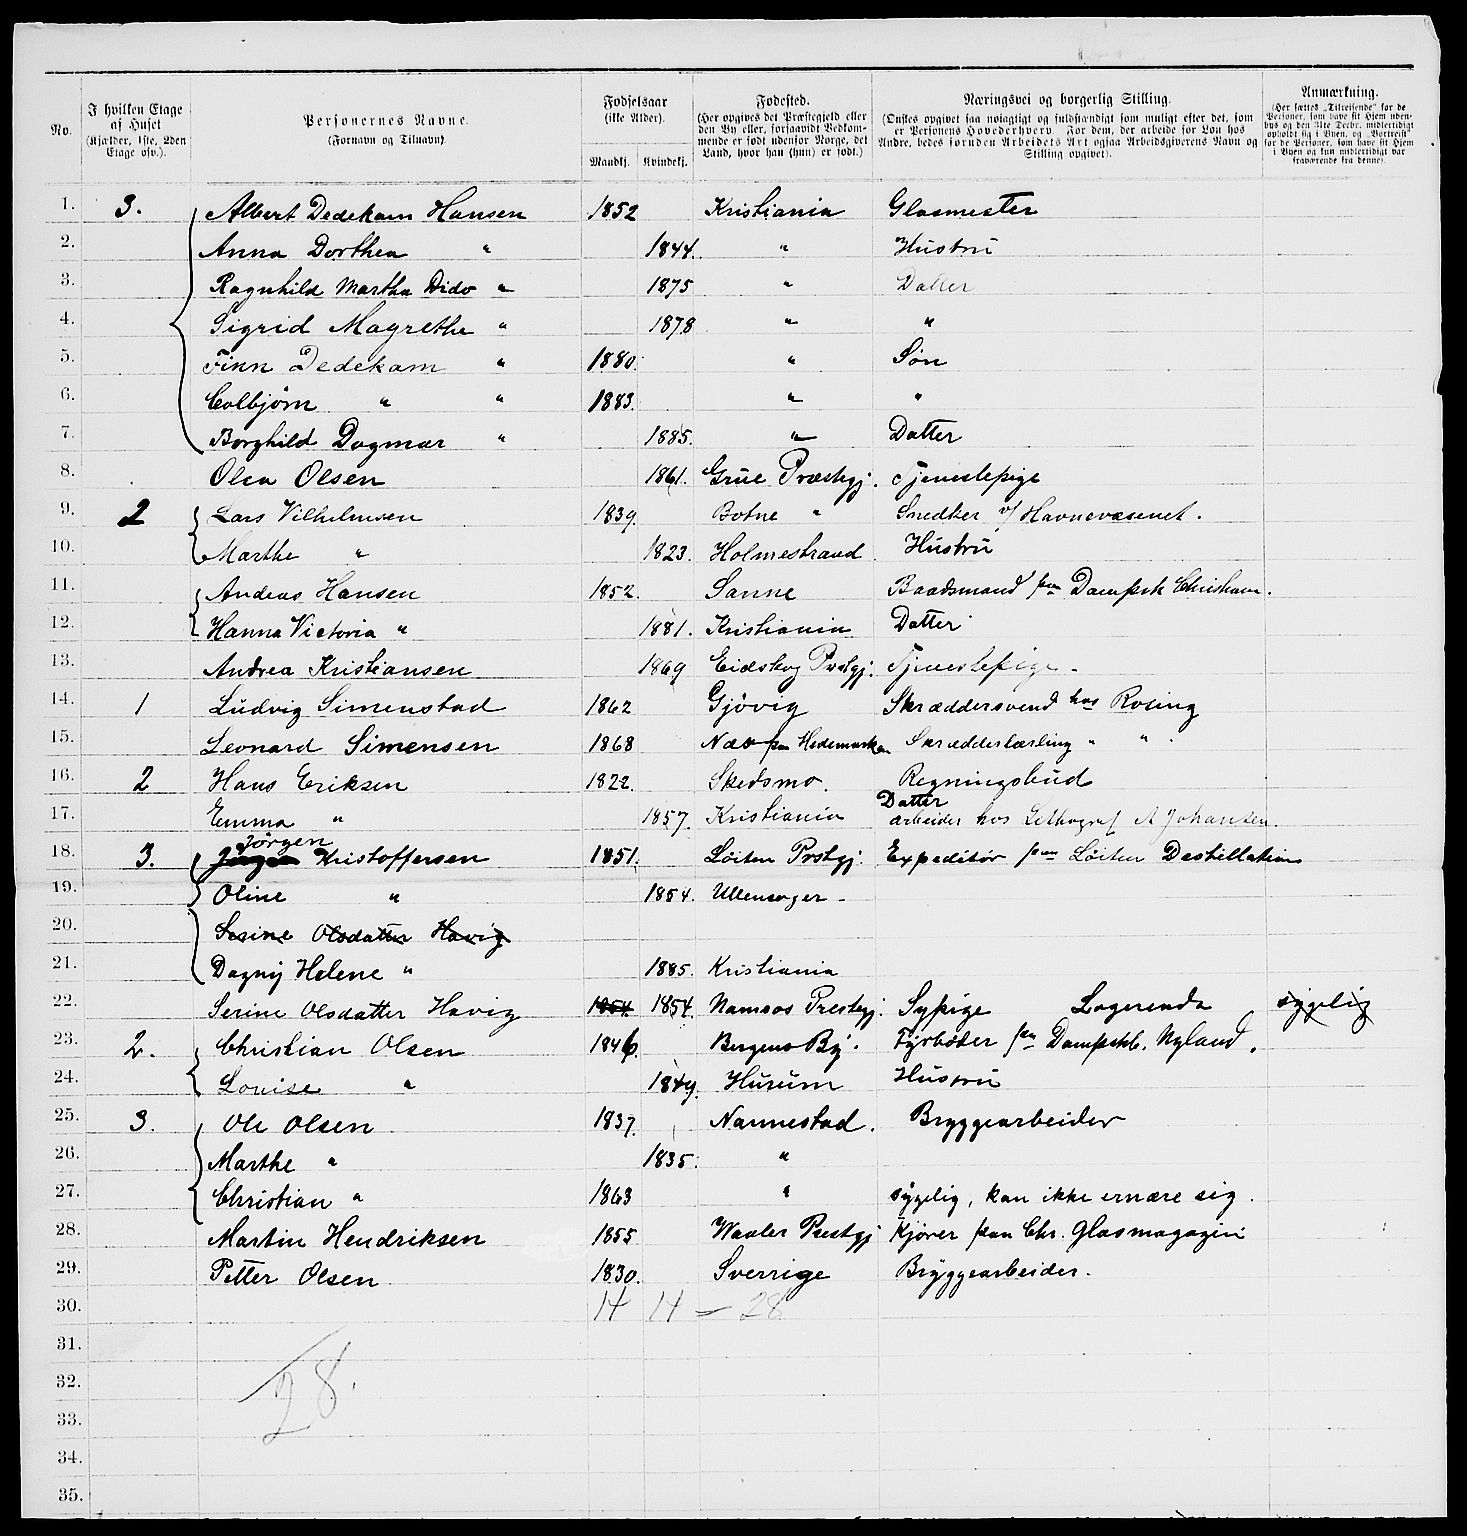 No. | I hvilken Etage af Huset (Kjælder, 1ste, 2den Etage osv.). | Personernes Navne. (Fornavn og Tilnavn). | Fødselsaar (ikke Alder). Mandkj. | Kvindekj. | Fødested. (Her opgives det Præstegjeld eller den By eller, forsaavidt Vedkommende er født udenfor Norge, det Land, hvor han (hun) er født.) | Næringsvei og borgerlig Stilling. (Ønskes opgivet saa nøiagtigt og fuldstændigt som muligt efter det, som er Personens Hovederhverv. For dem, der arbeide for Løn hos Andre, bedes foruden Arbeidets Art ogsaa Arbeidsgiverens Navn og Stilling opgivet). | Anmærkning. (Her sættes „Tilreisende" for de Personer, som have sit Hjem udenbys og den 31te Decbr. midlertidigt opholdt sig i Byen, og „Bortreist" for de Personer, som have sit Hjem i Byen og kun midlertidigt var fraværende fra denne).
1. 3. Albert Dedekam Hansen 1852 Kristiania Glasmester
2. Anna Dorthea " 1844. " Hustru
3. Ragnhild Martha Dido " 1875 " Datter
4. Sigrid Magrethe " 1878 " "
5. Finn Dedekam " 1880. " Søn
6. Colbjørn " " 1883. " "
7. Borghild Dagmar " 1885. " Datter
8. Olea Olsen 1861. Grue Præstegj. Tjenestepige
9. 2 Lars Vilhelmsen 1839. Botne " Snedker v/ Havnevæsenet.
10. Marthe " 1823. Holmestrand Hustru
11. Andreas Hansen 1852. Sanne Baadsmand paa Dampsk Christiania.
12. Hanna Victoria " 1881. Kristiania Datter
13. Andrea Kristiansen 1869 Eidskog Prstgj. Tjenestepige.
14. 1 Ludvig Simenstad 1862 Gjövig Skræddersvend hos Rosing
15. Leonard Simensen 1868 Næs paa Hedemarken Skrædderlærling " "
16. 2 Hans Eriksen 1822. Skedsmo. Regningsbud
17. Emma " 1857. Kristiania Datter arbeider hos Lithograf A Johansen.
Jörgen
18. 3. Kristoffersen 1851. Löiten Prstgj. Expeditör paa Löiten Destillation
19. Oline " 1854. Ullensager
20. Serine Olsdatter Havig
21. Dagny Helene " 1885. Kristiania
22. Serine Olsdatter Havig 1854 1854. Namsos Prestegj. Sypige Logerende sygelig
23. 2. Christian Olsen 1846. Bergens By. Fyrböder paa Dampskb. Nyland.
24. Louise " 1849. Hurum Hustru
25. 3. Ole Olsen 1837. Nannestad. Bryggearbeider
26. Marthe " 1835. "
27. Christian " 1863 " sygelig, kan ikke ernære sig.
28. Martin Hendriksen 1855 Waaler Prestgj Kjører paa Chr. Glasmagazin
29. Petter Olsen 1830. Sverrige Bryggearbeider.
30. 14 14 = 28
31.
32. 28.
33.
34.
35.